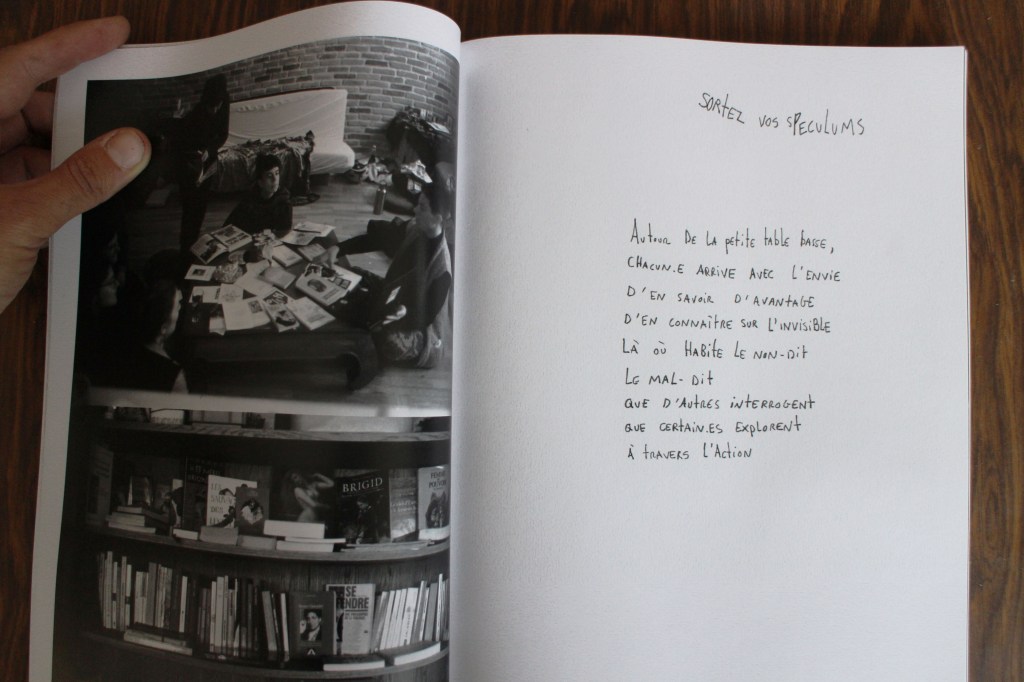 BRIGID
SE
SORTEZ VOS SPECULUMS
AUTOUR DE LA PETITE TABLE BASSE,
CHACUN.E ARRIVE AVEC L'ENVIE
D'EN SAVOIR D'AVANTAGE
D'EN CONNAÎTRE SUR L'INVISIBLE
LÀ OÙ HABITE LE NON-DIT
LE MAL-DIT
QUE D'AUTRES INTERROGENT
QUE CERTAIN.ES EXPLORENT
À TRAVERS L'ACTION